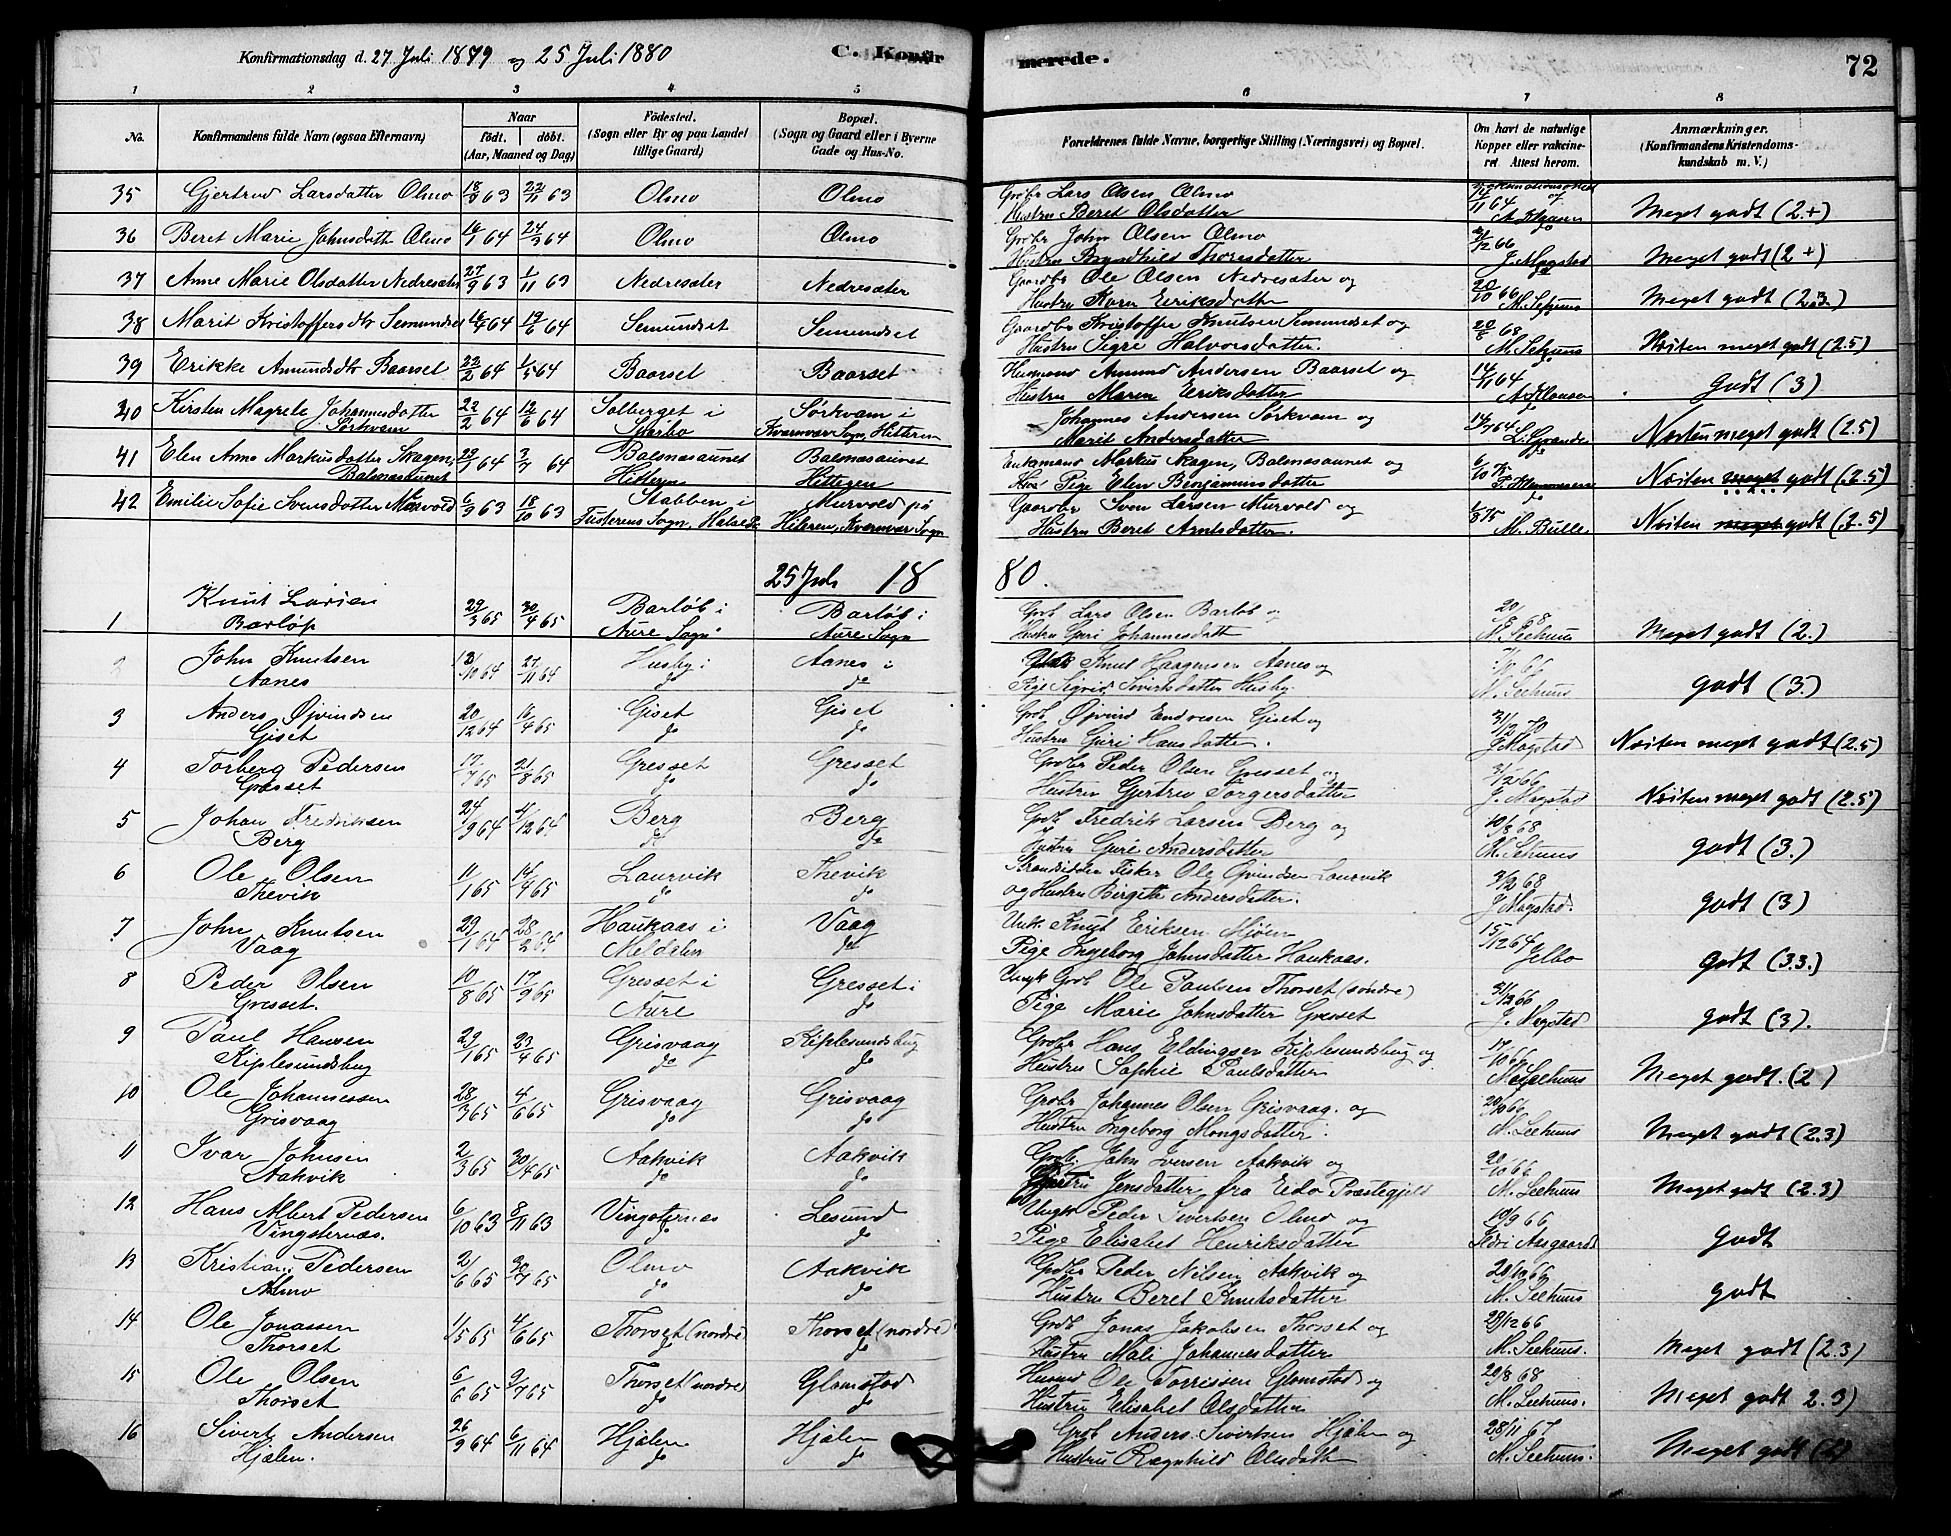 Konfirmationsdag d. 27 Juli 1879 og 25 Juli 1880
C. Konfir
merede.
72
1 2 3 4 5 6 7 8
No.
Konfirmandens fulde Navn (ogsaa Efternavn)
Naar
født. døbt.
(Aar, Maaned og Dag)
Fødested.
(Sogn eller By og paa Landet
tillige Gaard)
Bopæl.
(Sogn og Gaard eller i Byerne
Gade og Hus-No.
Forældrenes fulde Navne, borgerlige Stilling (Næringsvei) og Bopæl.
Om havt de naturlige
Kopper eller vakcine-
ret Attest herom.
Anmærkninger.
(Konfirmandens Kristendoms-
kundskab m. V.)
35 Gjertrud Larsdatter Olmo 18/9 63 22/11 63 Olmo Olmo Grdbr Lars Olsen Olmo
Hustru Beret Olsdatter 11 64 Meget godt (2+)
36 Beret Marie Johnsdatt Olmo 16/1 64 24/3 64 Olmo Olmo Grdbr John Olsen Olmo
Hustru Bryndhild Thoresdatter 12 66 J. Magstad Meget godt (2+)
37 Anne Marie Olsdatter Nedresæter 27/9 63 1/11 63 Nedresæter Nedresæter Gaardbr Ole Olsen Nedresæter og
Hustru Karen Eeriksdatter 20/10 66 Meget godt (2.3.)
38 Marit Kristoffersdtr Semundset 16/4 64 19/6 64 Semundset Semundset Gaardbr Kristoffer Knutsen Semundset og
Hustru Sigri Halvorsdatter. 20/8 68 Næsten meget godt (2.5)
39 Erikke Amundsdtr Baarset 22/2 64 1/5 64 Baarset Baarset Husmand Amund Andersen Baarset og
Hustru Maren Eeriksdatter 14/11 64 A. Klausen Godt (3)
40 Kirsten Magrete Johannesdatter
Sørkvam 22/2 64 12/6 64 Solberget i
Sparbo Sørkvam i
Kvarnvær Sogn, Hitteren Johannes Andersen Sørkvam og
Marit Andersdatter 64 L. Grande Næsten meget godt (2.5)
41 Elen Anna Markusdatter Skagen,
Balsnæsaunet 64 3/7 64 Balsnæsaunet
Hitteren Balsnæsaunet
Hitteren Enkemand Markus Skagen, Balsnæsaunet og
Pige Elen Benjaminsdatter Næsten meget godt (2.5)
42 Emilie Sofie Svensdatter Murvold 6/3 63 18/10 63 Stabben i
Fusterens Sogn, Murvold på
Hiteren, Kvarnvær Sogn Gaardbr Sven Larsen Murvold og
Hustru Beret Arntsdatter. 75 M. Bulle Næsten meget godt (2.5)
25 Juli 18 80.
1 Knut Larsen
Barløp 29/3 65 30/4 65 Barløb i
Aure Sogn Barløb i
Aure Sogn Grdb Lars Olsen Barløb og
Hustru Guri Johannesdatt 20/8 68 M. Seehuus Meget godt (2.)
2 John Knutsen
Aanes 13/10 64 27/11 64 Husby i
do Aanes i
do Knut Haagensen Aanes og
Pige Sigrid Sivertsdatter Husby 66 M. Seehuus godt (3.)
3 Anders Øjvindsen
Giset 20/12 64 16/4 65 Giset
do Giset
do Grdb Øjvind Endresen Giset og
Hustru Guri Hansdatter. 31/12 J. Magstad Næsten meget godt (2.5)
4 Torberg Pedersen
Gresset 17/7 65 21/8 65 Gresset
do Gresset
do Grdbr Peder Olsen Gresset og
Hustru Gjertru Torgersdatter 31/12 66 J. Magstad Næsten meget godt (2.5)
5 Johan Fredriksen
Berg 24/9 64 4/12 64 Berg
do Berg
do Grdb Fredrik Larsen Berg og
Hustru Guri Andersdatter 10/8 68 M. Seehuus godt (3.)
6 Ole Olsen
Thevik 11/1 65 14/4 65 Laurvik
do Thevik
do Strandsidder Fisker Ole Øvindsen Laurvik
og Hustru Birgitte Andersdatter. 68 J. Magstad. godt (3)
7 John Knutsen
Vaag 29/1 64 28/2 64 Haukaas i
Meldalen Vaag
do Unk. Knut Eriksen Mjøen
Pige Ingeborg Johnsdatter Haukaas. 15/12 64 godt (3.3.)
8 Peder Olsen
Gresset. 10/8 65 17/9 65 Gresset i
Aure Gresset i
do Ungk Grdb Ole Paulsen Thorset (søndre)
Pige Marie Johnsdatter Gresset 31/12 66 J. Magstad godt (3).
9 Paul Hansen
Kiplesundsbug 29/1 65 23/4 65 Grisvaag
do Kiplesundsbug
do Grdbr Hans Eldingsen Kiplesundsbug og
Hustru Sophie Paulsdatter 17/10 66 M. Seehuus Meget godt. (2)
10 Ole Johannessen
Grisvaag 28/3 65 4/6 65 Grisvaag
do Grisvaag
do Grdbr Johannes Olsen Grisvaag. og
Hustru Ingeborg Mongsdatter. 20/10 66 M. Seehuus Meget godt (2.3)
11 Ivar Johnsen
Aakvik 2/3 65 30/4 65 Aakvik
do Aakvik
do Grdb. John Iversen Aakvik og
Jensdatter fra Eido Præstegjeld 20/10 66 M. Seehuus Meget godt (2.3)
12 Hans Albert Pedersen
Vingsternæs. 6/10 63 8/11 63 Vingsternæs
do Lesund
do Ungk Peder Sivertsen Olmo og
Pige Elisabet Henriksdatter 10/9 66 Aasgaard godt
13 Kristian Pedersen
Almo 21/6 65 30/7 65 Olmo
do Aakvik
do Grdbr Peder Nilsen Aakvik og
Hustru Beret Knutsdatter 20/10 66 M. Seehuus godt
14 Ole Jonassen
Thorset 11/5 65 4/6 65 Thorset (nordre)
do Thorset (nordre)
do Grdb Jonas Jakobsen Thorset og
Hustru Mali Johannesdatter 29/12 66 M. Seehuus. Meget godt (2.3)
15 Ole Olsen
Thorset 6/6 65 9/7 65 Thorset (nordre)
do Glomstad
do Husmd Ole Torrissen Glomstad og
Hustru Elisabet Olsdatter 20/8 68 M. Seehuus. Meget godt 2.3)
16 Sivert Andersen
Hjælen. 26/9 64 6/11 64 Hjælen
do Hjælen
do Grdb Anders Sivertsen Hjælen og
Hustru Ragnhild Olsdatt 28/11 67 M. Seehuus. Meget godt (2)